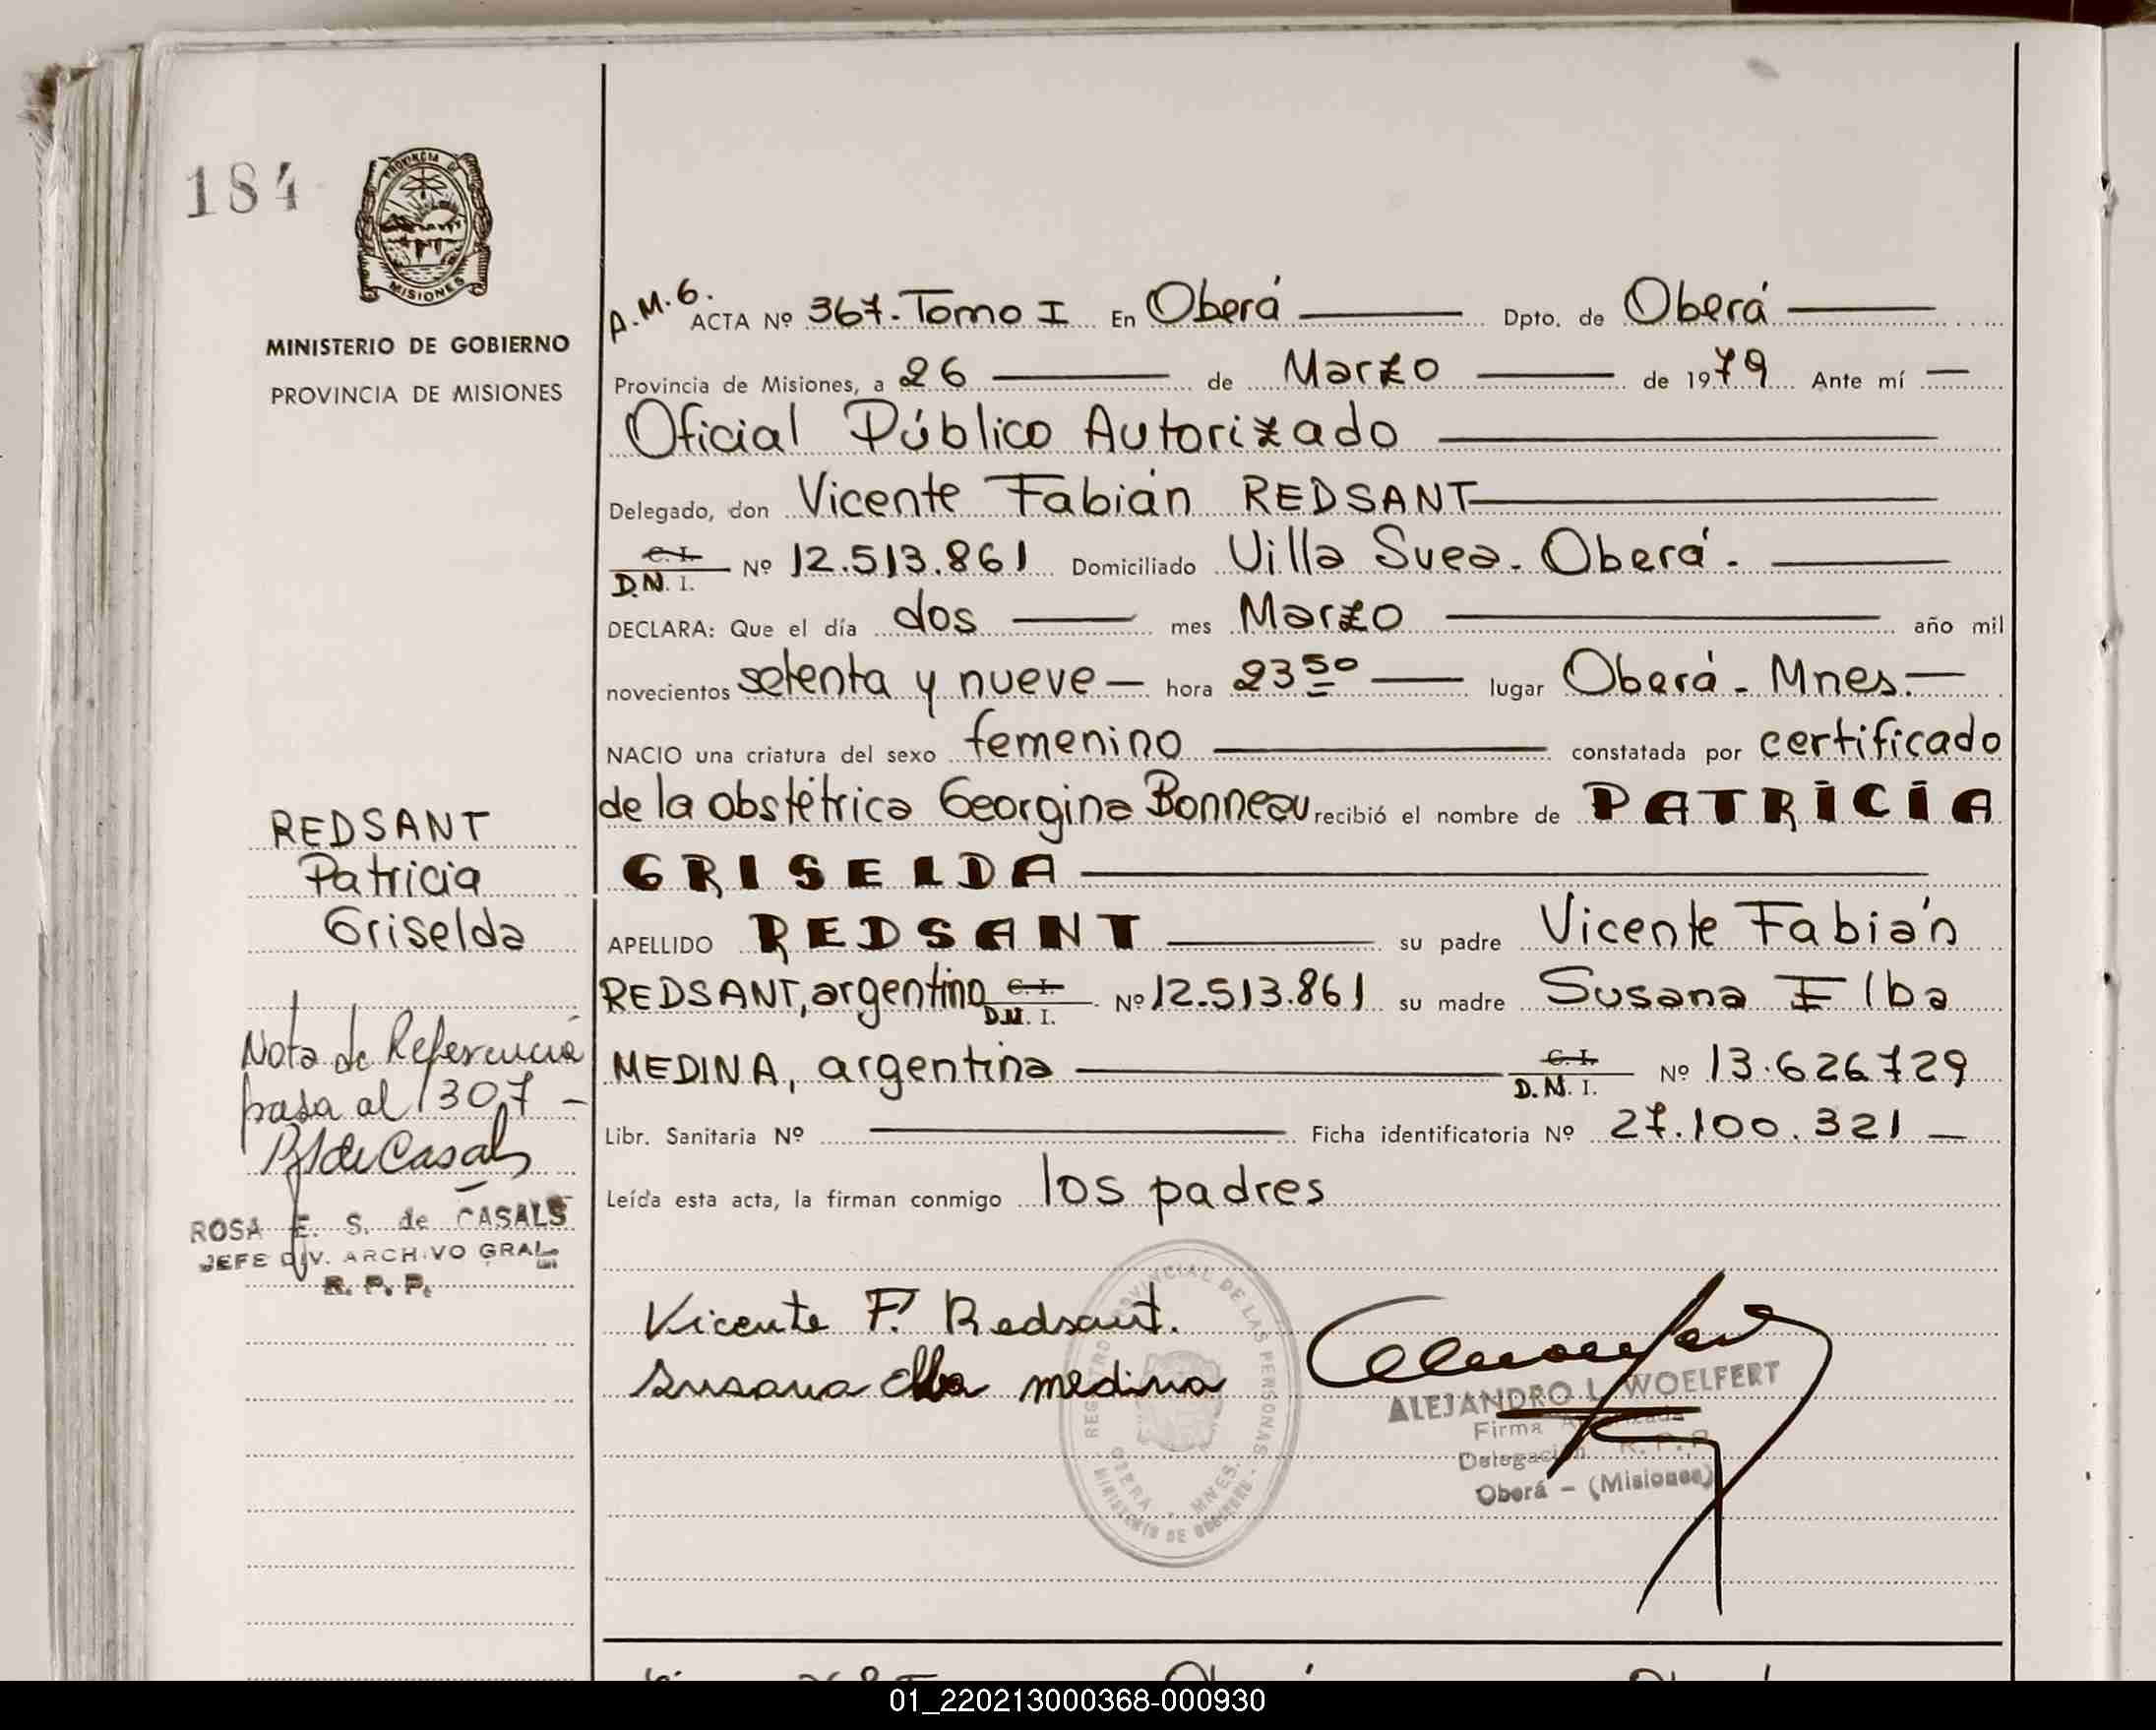 184
PROVINCIA DE
MISIONES
MINISTERIO DE GOBIERNO
PROVINCIA DE MISIONES
REDSANT
Patricia
Griselda
Nota de Referencia
pasa al 1307 -
ROSA E. S. de CASALS
JEFE DIV. ARCHIVO GRAL.
R. P. P.
A.M.G. ACTA Nº 367. Tomo I En Oberá Dpto. de Oberá
Provincia de Misiones, a 26 de Marzo de 1979 Ante mí
Oficial Público Autorizado
Delegado, don Vicente Fabián REDSANT
C.I. D.N.I. Nº 12.513.861 Domiciliado Villa Svea. Oberá.
DECLARA: Que el día dos mes Marzo año mil
novecientos setenta y nueve - hora 23 50 lugar Oberá - Mnes.
NACIO una criatura del sexo femenino constatada por certificado
de la obstétrica Georgina Bonneau recibió el nombre de PATRICIA
GRISELDA
APELLIDO REDSANT su padre Vicente Fabián
REDSANT, argentino C.I. D.N.I. Nº 12.513.861 su madre Susana Elba
MEDINA, argentina C.I. D.N.I. Nº 13.626729
Libr. Sanitaria Nº Ficha identificatoria Nº 27.100.321 -
Leída esta acta, la firman conmigo los padres
Vicente F. Redsant.
Susana Elba medina
REGISTRO PROVINCIAL DE LAS PERSONAS
OBERA - MNES.
MINISTERIO DE GOBIERNO
ALEJANDRO L. WOELFERT
Firma Autorizada
Delegación R. P. P.
Oberá - (Misiones)
01_220213000368-000930